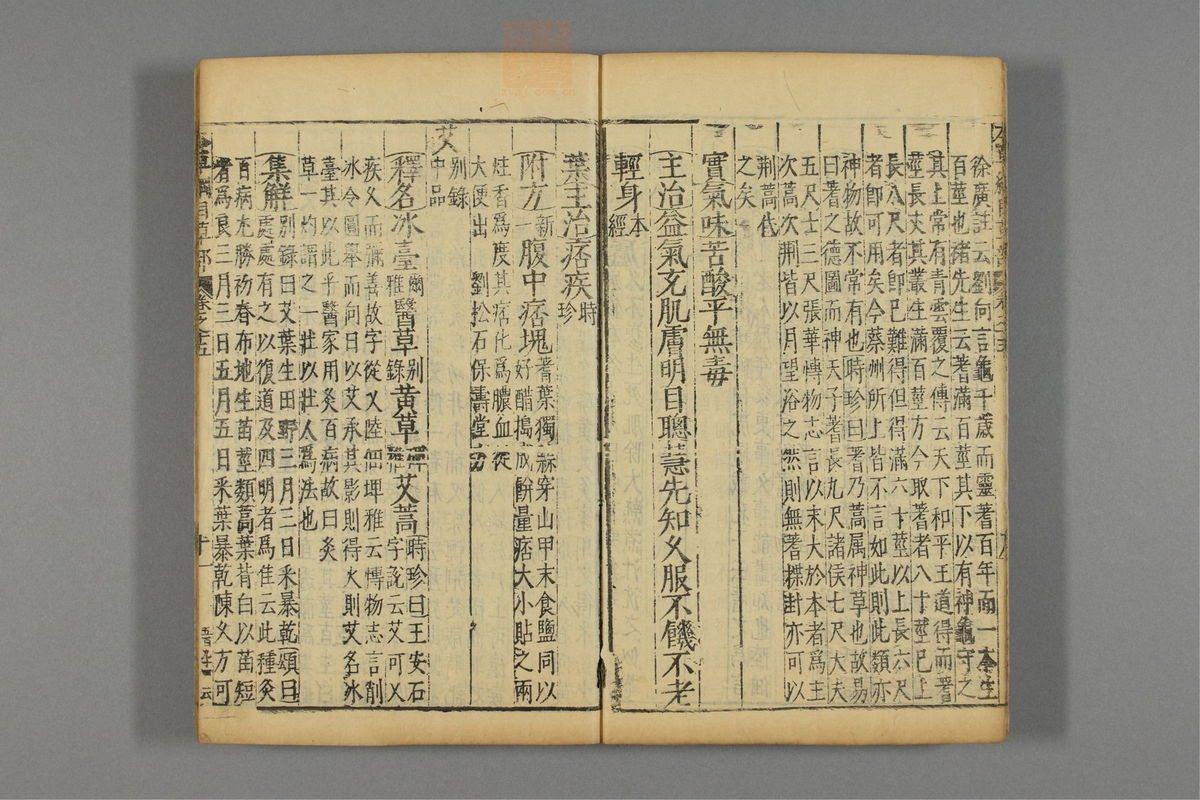 徐廣註云劉向言龜千歲而靈蓍百年而一本生
百莖也褚先生云蓍滿百莖其下以有神龜守之
其上常有青雲覆之傳云天下和平王道得而蓍
莖長丈其叢生滿百莖方今取蓍者八十莖已上
長八尺者卽已難得但得滿六十莖以上長六尺
者卽可用矣今蔡州所上皆不言如此則此類亦
神物故不常有也時珍曰蓍乃蒿属神草也故易
曰蓍之德圓而神天子蓍長九尺諸侯七尺大夫
五尺士三尺張華博物志言以末大於本者爲主
次蒿次荆皆以月望浴之然則無蓍揲卦亦可以
荆蒿代
之矣
實氣味苦酸平無毒
主治益氣充肌膚明目聰慧先知久服不饑不老
輕身本經
葉主治痞疾時珍
附方新一腹中痞塊蓍葉獨蒜穿山甲末食鹽同以
好醋搗成餅量痞大小貼之兩
炷香爲度其痞化爲膿血從
大便出 劉松石保壽堂方
艾
别錄
中品
釋名冰臺爾雅醫草别錄黄草埤雅艾蒿時珍曰王安石
字說云艾可乂
疾久而彌善故字從乂陸佃埤雅云博物志言削
冰令圓舉而向日以艾承其影則得火則艾名冰
臺其以此乎醫家用灸百病故曰灸
草一灼謂之一壯以壯人爲法也
集解别錄曰艾葉生田野三月三日采暴乾頌曰
處處有之以復道及四明者爲佳云此種灸
百病尤勝初春布地生苗莖類蒿葉背白以苗短
者爲良三月三日五月五日采葉暴乾陳久方可